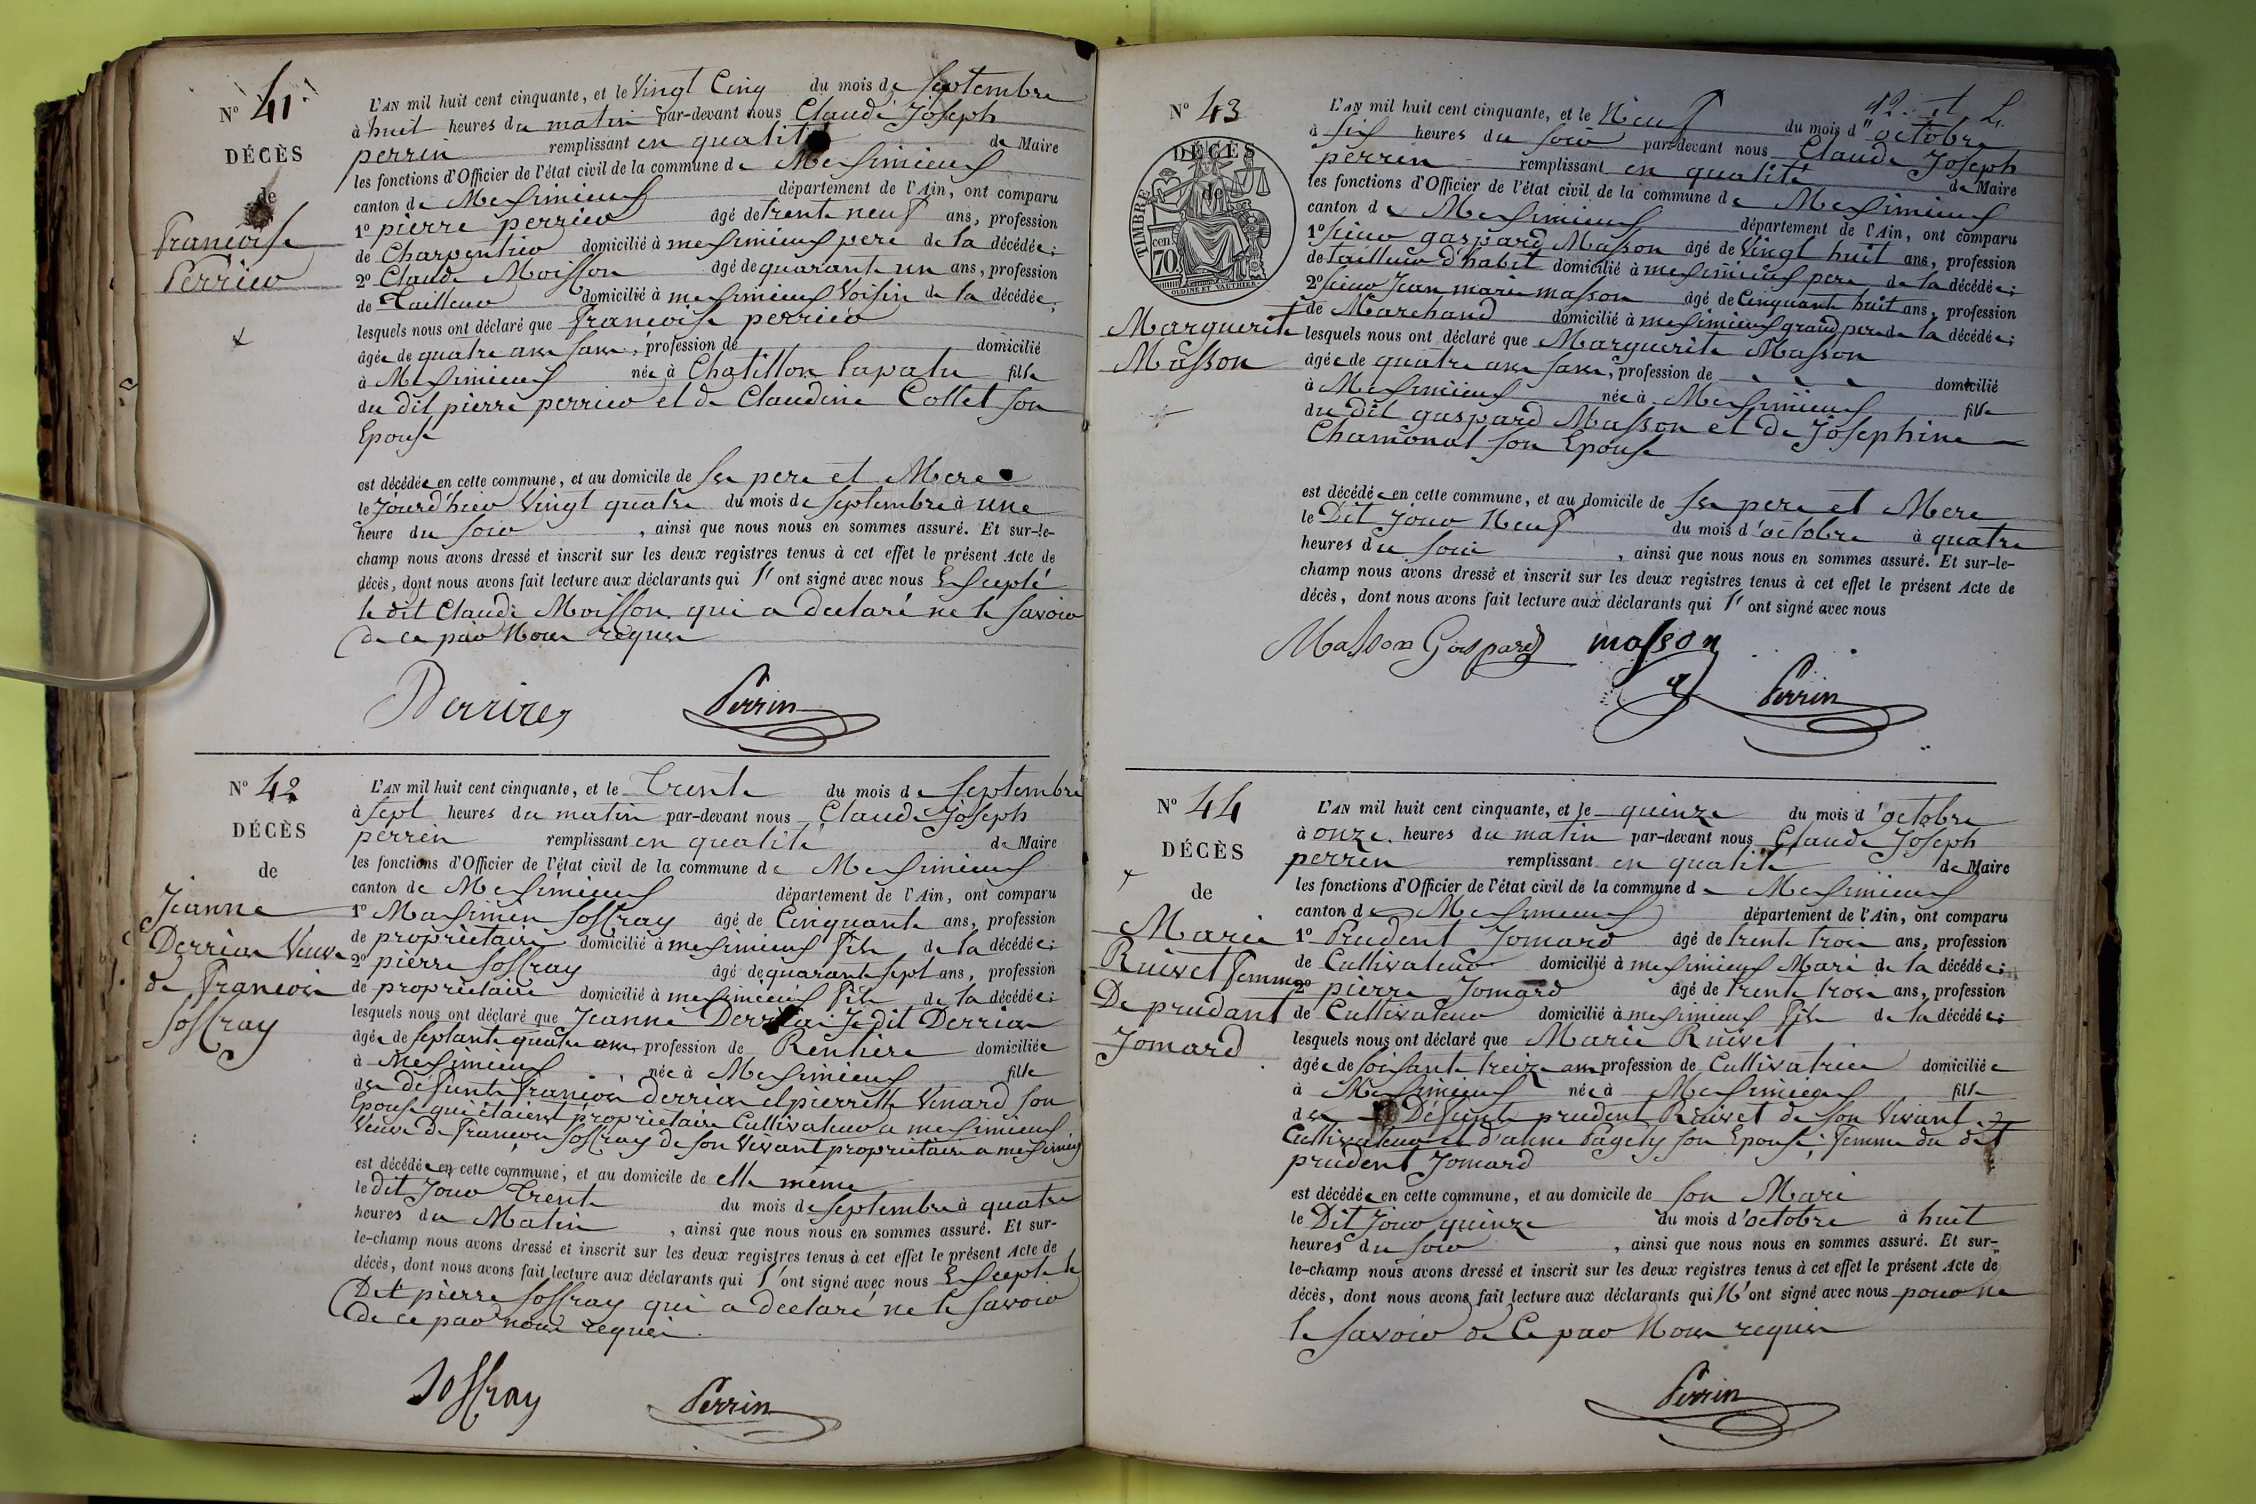 N° 41
DÉCÈS
de
francoise
Perrier
L'AN mil huit cent cinquante, et le Vingt Cinq du mois de septembre
à huit heures du matin par-devant nous Claude Joseph
perrin remplissant en qualité de Maire
les fonctions d'Officier de l'état civil de la commune de Meximieux
canton de Meximieux département de l'Ain, ont comparu
1° pierre perrier âgé de trente neuf ans, profession
de Charpentier domicilié à meximieux pere de la décédée;
2° Claude Moisson âgé de quarante un ans, profession
de Tailleur domicilié à meximieux Voisin de la décédée;
lesquels nous ont déclaré que francoise perrier
âgée de quatre ans sans, profession de domicilié
à Meximieux née à Chatillon lapalu fille
du dit pierre perrier et de Claudine Collet son
Epouse
est décédée en cette commune, et au domicile de ses pere et Mere
le Jourd'hier Vingt quatre du mois de septembre à une
heure du soir, ainsi que nous nous en sommes assuré. Et sur-le-
champ nous avons dressé et inscrit sur les deux registres tenus à cet effet le présent Acte de
décès, dont nous avons fait lecture aux déclarants qui l'ont signé avec nous Excepté
le dit Claude Moisson qui a declaré ne le savoir
de ce par Nous requis
Perrin
N° 42
DÉCÈS
de
Jeanne
Derrias Veuve
de Francois
Soffray
L'AN mil huit cent cinquante, et le Trente du mois de septembre
à sept heures du matin par-devant nous Claude Joseph
perren remplissant en qualité de Maire
les fonctions d'Officier de l'état civil de la commune de Meximieux
canton de Meximieux département de l'Ain, ont comparu
1° Maximin Soffray âgé de Cinquante ans, profession
de propriétaire domicilié à meximieux fils de la décédée;
2° pierre Soffray âgé de quarante sept ans, profession
de propriétaire domicilié à meximieux fils de la décédée;
lesquels nous ont déclaré que Jeanne Derrias Je dit Derrias
âgée de septante quatre ans, profession de Rentière domiciliée
à Meximieux née à Meximieux fille
des défunts francois derrias et pierrette Venard son
Epouse qui étaient propriétaire Cultivateur a meximieux
Veuve de francois Soffray de son Vivant propriétaire a meximieux
est décédée en cette commune, et au domicile de elle même
le dit Jour Trente du mois de septembre à quatre
heures du Matin, ainsi que nous nous en sommes assuré. Et sur-
le-champ nous avons dressé et inscrit sur les deux registres tenus à cet effet le présent Acte de
décès, dont nous avons fait lecture aux déclarants qui l'ont signé avec nous Excepté le
Dit pierre Soffray qui a declaré ne le savoir
de ce par nous requis.
Soffray Perrin
N° 43
DÉCÈS
de
TIMBRE
70 cen
OUDINÉ ET VAUTHIER
Marguerite
Masson
L'AN mil huit cent cinquante, et le Neuf du mois d'octobre
à six heures du soir par-devant nous Claude Joseph
perrin remplissant en qualité de Maire
les fonctions d'Officier de l'état civil de la commune de Meximieux
canton de Meximieux département de l'Ain, ont comparu
1° sieur gaspard Masson âgé de Vingt huit ans, profession
de tailleur d'habit domicilié à meximieux pere de la décédée;
2° sieur Jean marie masson âgé de Cinquante huit ans, profession
de Marchand domicilié à meximieux grand pere de la décédée;
lesquels nous ont déclaré que Marguerite Masson
âgée de quatre ans sans, profession de domicilié
à Meximieux née à Meximieux fille
du dit gaspard Masson et de Josephine
Chamonal son Epouse
est décédée en cette commune, et au domicile de ses pere et Mere
le Dit Jour Neuf du mois d'octobre à quatre
heures du soir, ainsi que nous nous en sommes assuré. Et sur-le-
champ nous avons dressé et inscrit sur les deux registres tenus à cet effet le présent Acte de
décès, dont nous avons fait lecture aux déclarants qui l'ont signé avec nous
Masson Gaspard masson
Perrin
N° 44
DÉCÈS
de
Marie
Ruivet femme
De prudant
Jomard
L'AN mil huit cent cinquante, et le quinze du mois d'octobre
à onze heures du matin par-devant nous Claude Joseph
perrin remplissant en qualité de Maire
les fonctions d'Officier de l'état civil de la commune de Meximieux
canton de Meximieux département de l'Ain, ont comparu
1° Prudent Jomard âgé de trente trois ans, profession
de Cultivateur domicilié à meximieux Mari de la décédée;
2° pierre Jomard âgé de trente trois ans, profession
de Cultivateur domicilié à meximieux fils de la décédée;
lesquels nous ont déclaré que Marie Ruivet
âgée de soixante treize ans profession de Cultivatrice domiciliée
à Meximieux née à Meximieux fille
des Défunts prudent Ruivet de son Vivant
Cultivateur et d'anne Pagety son Epouse; femme du dit
prudent Jomard
est décédée en cette commune, et au domicile de son Mari
le Dit Jour quinze du mois d'octobre à huit
heures du soir, ainsi que nous nous en sommes assuré. Et sur-
le-champ nous avons dressé et inscrit sur les deux registres tenus à cet effet le présent Acte de
décès, dont nous avons fait lecture aux déclarants qui N'ont signé avec nous pour ne
le savoir de Ce par Nous requis
Perrin